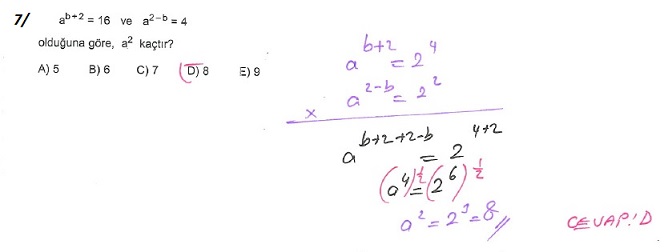 7/ a^{b+2} = 16 ve a^{2-b} = 4
olduğuna göre, a² kaçtır?
A) 5 B) 6 C) 7 D) 8 E) 9
a^{b+2} = 2^4
a^{2-b} = 2^2
x
a^{b+2+2-b} = 2^{4+2}
(a^4)^{1/2} = (2^6)^{1/2}
a² = 2³ = 8 //
CEVAP: D